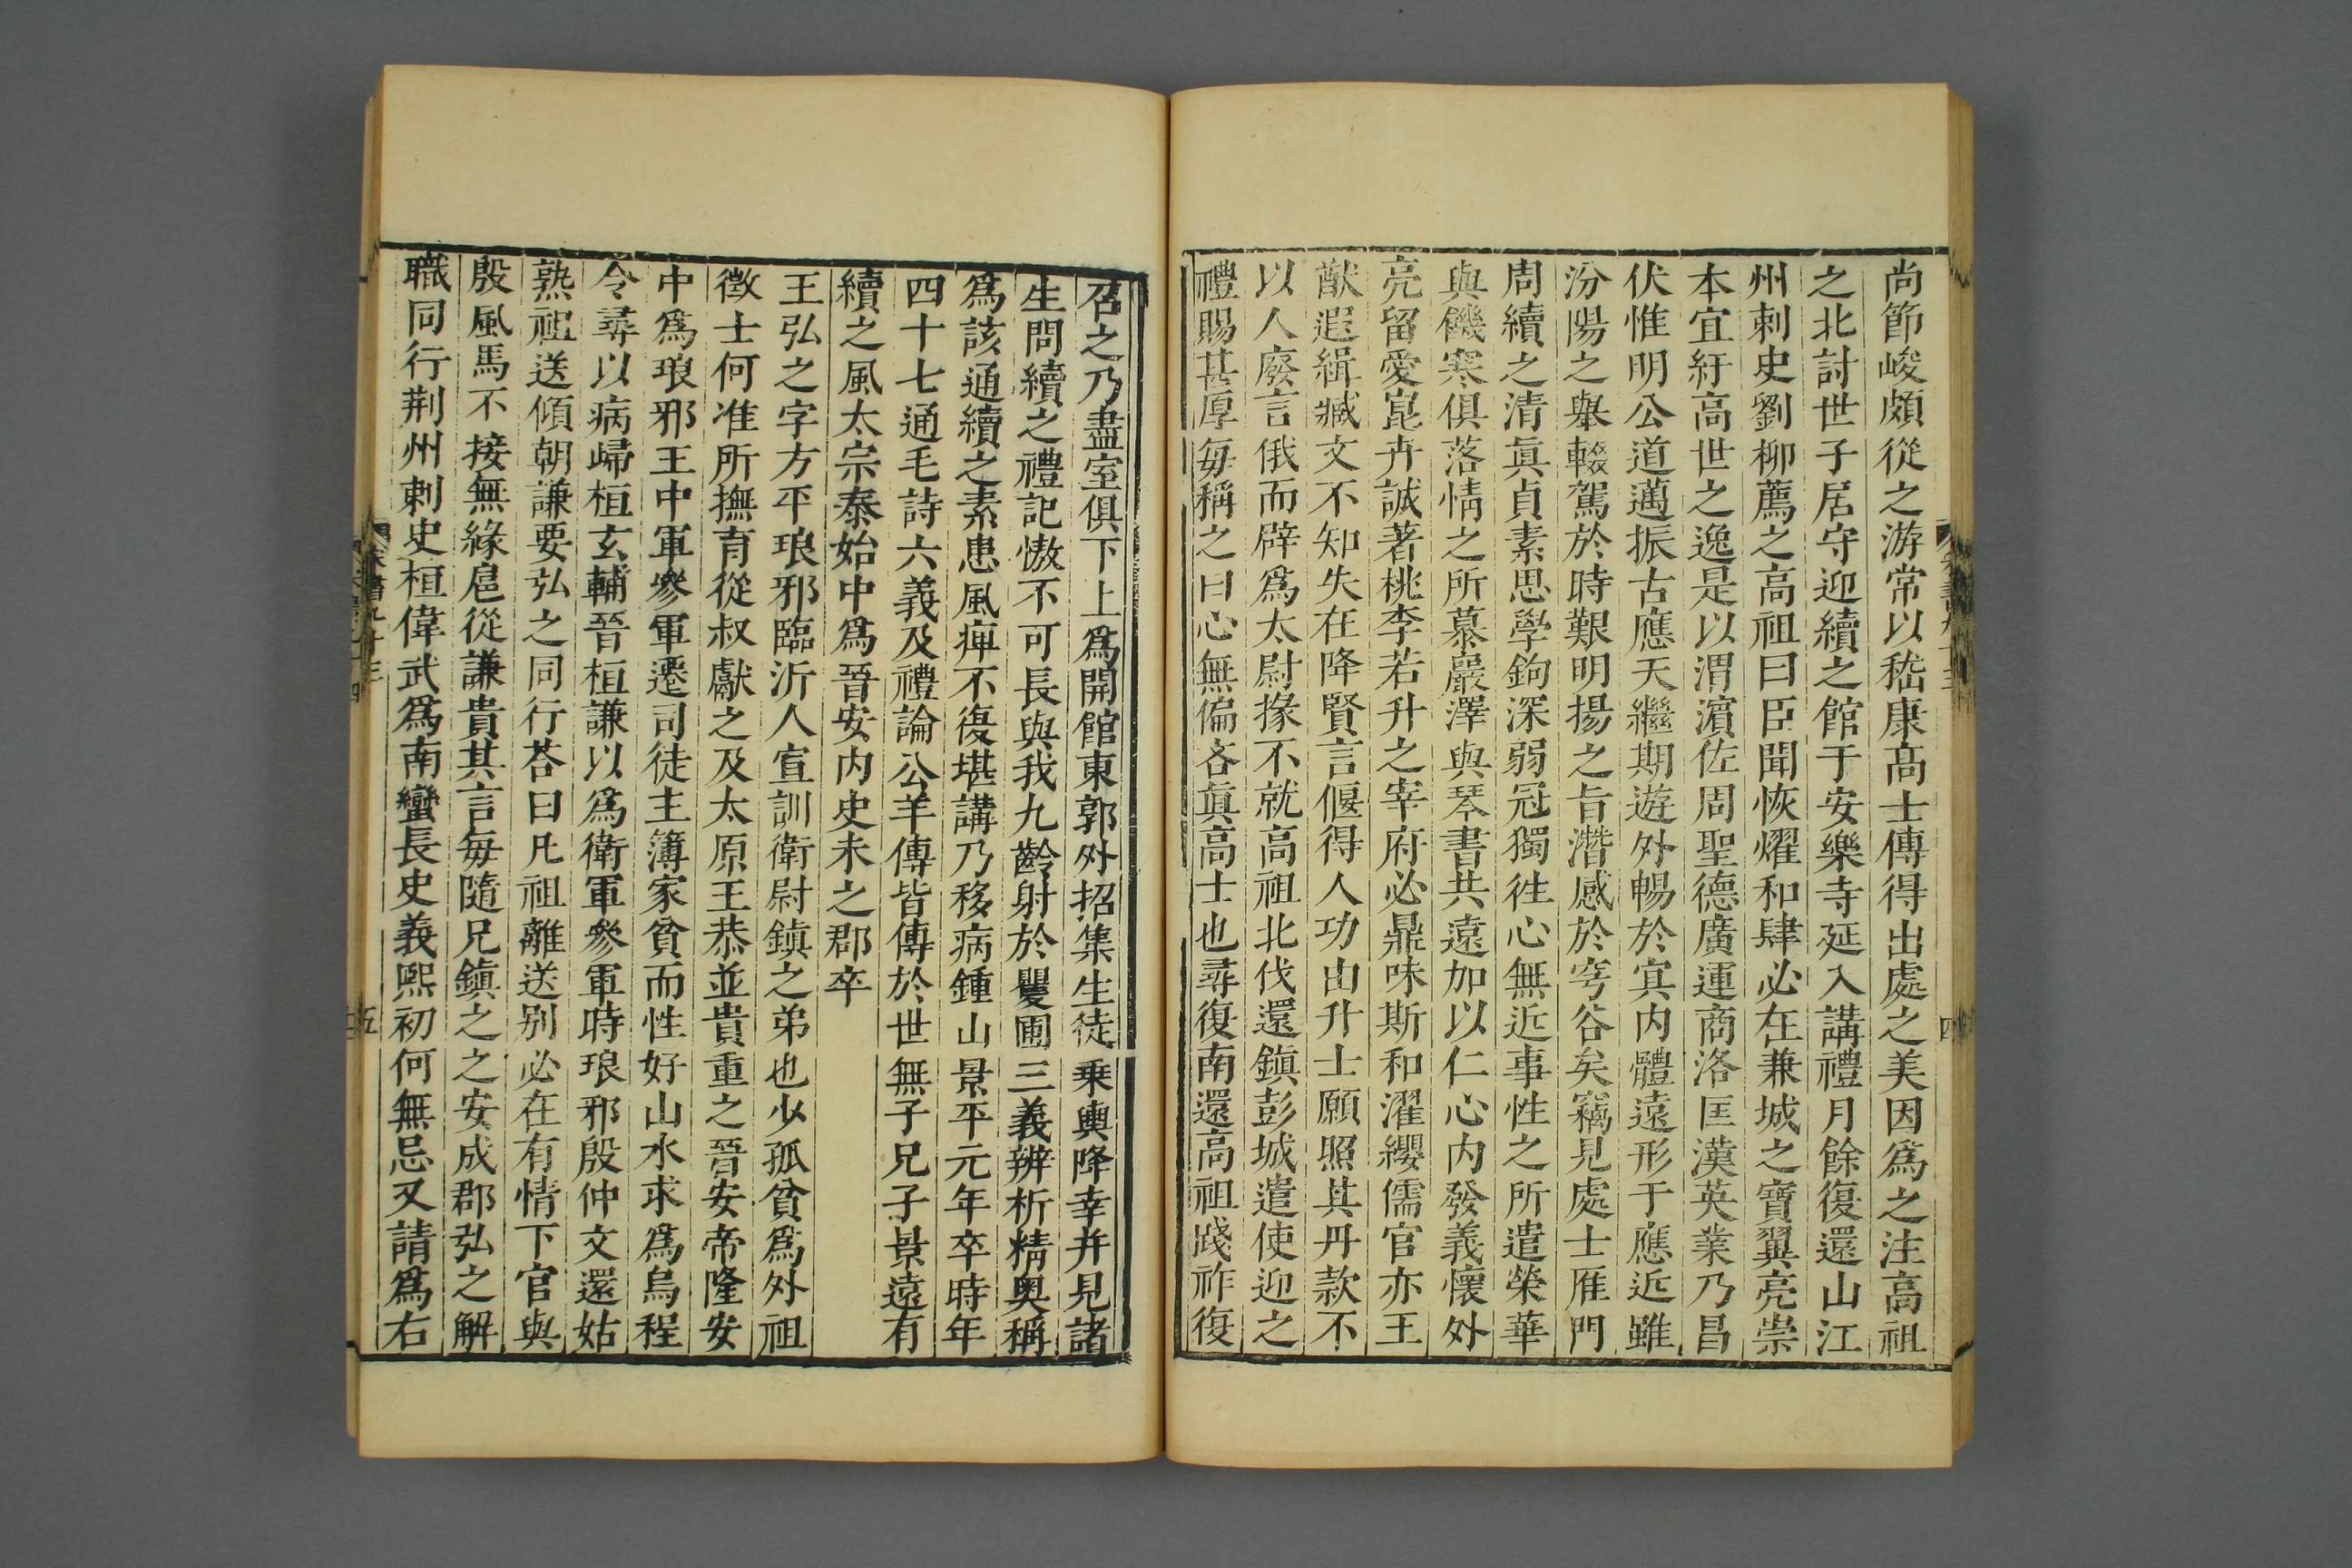 尚節峻頗從之游常以嵇康高士傳得出處之美因爲之注高祖
之北討世子居守迎續之館于安樂寺延入講禮月餘復還山江
州刺史劉柳薦之高祖曰臣聞恢燿和肆必在兼城之寶翼亮崇
本宜紆高世之逸是以渭濱佐周聖德廣運商洛匡漢英業乃昌
伏惟明公道邁振古應天繼期遊外暢於㝠内體遠形于應近雖
汾陽之舉輟駕於時艱明揚之旨潛感於穹谷矣竊見處士雁門
周續之清眞貞素思學鉤深弱冠獨徃心無近事性之所遣榮華
與饑寒俱落情之所慕巖澤與琴書共遠加以仁心内發義懷外
亮留愛崑卉誠著桃李若升之宰府必鼎味斯和濯纓儒官亦王
猷遐緝臧文不知失在降賢言偃得人功由升士願照其丹款不
以人廢言俄而辟爲太尉掾不就高祖北伐還鎮彭城遣使迎之
禮賜甚厚每稱之曰心無偏吝眞高士也尋復南還高祖踐祚復
召之乃盡室俱下上爲開館東郭外招集生徒乗輿降幸并見諸
生問續之禮記慠不可長與我九齡射於矍圃三義辨析精奥稱
爲該通續之素患風痺不復堪講乃移病鍾山景平元年卒時年
四十七通毛詩六義及禮論公羊傳皆傳於世無子兄子景遠有
續之風太宗泰始中爲晉安内史未之郡卒
王弘之字方平琅邪臨沂人宣訓衛尉鎮之弟也少孤貧爲外祖
徵士何准所撫育從叔獻之及太原王恭並貴重之晉安帝隆安
中爲琅邪王中軍參軍遷司徒主簿家貧而性好山水求爲烏程
令尋以病歸桓玄輔晉桓謙以爲衛軍參軍時琅邪殷仲文還姑
熟祖送傾朝謙要弘之同行荅曰凡祖離送别必在有情下官與
殷風馬不接無緣扈從謙貴其言每隨兄鎮之之安成郡弘之解
職同行荆州刺史桓偉武爲南蠻長史義熙初何無忌又請爲右